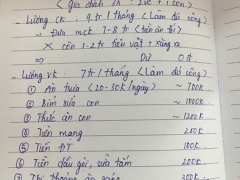 ( Gia đình 3N - 2vc + 1 con )
- Lương ck : 9.tr 1 tháng ( Làm đồ công)
=> Đưa mck 7-8 tr (tiền ăn th)
X còn 1-2 tr tiêu vặt + xăng xe
=> Dư 0đ
- Lương vk : 7tr 1 tháng ( Làm đồ công)
① Ăn trưa (20-30k/ngày) ~ 700k
② Bỉm sữa con ~ 1000k
③ Thức ăn con ~ 1200k
④ Tiền mạng 230k
⑤ Tiền ĐT 100k
⑥ Tiền dầu gội, sữa tắm 200k
300k